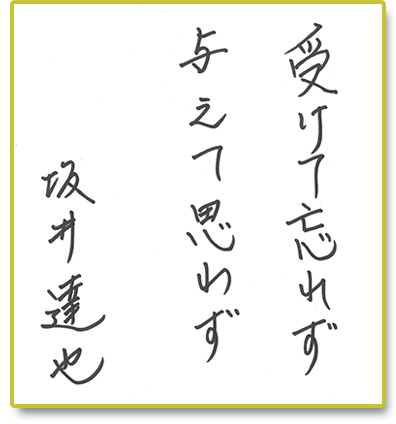 受けて忘れず
与えて思わず
坂井達也